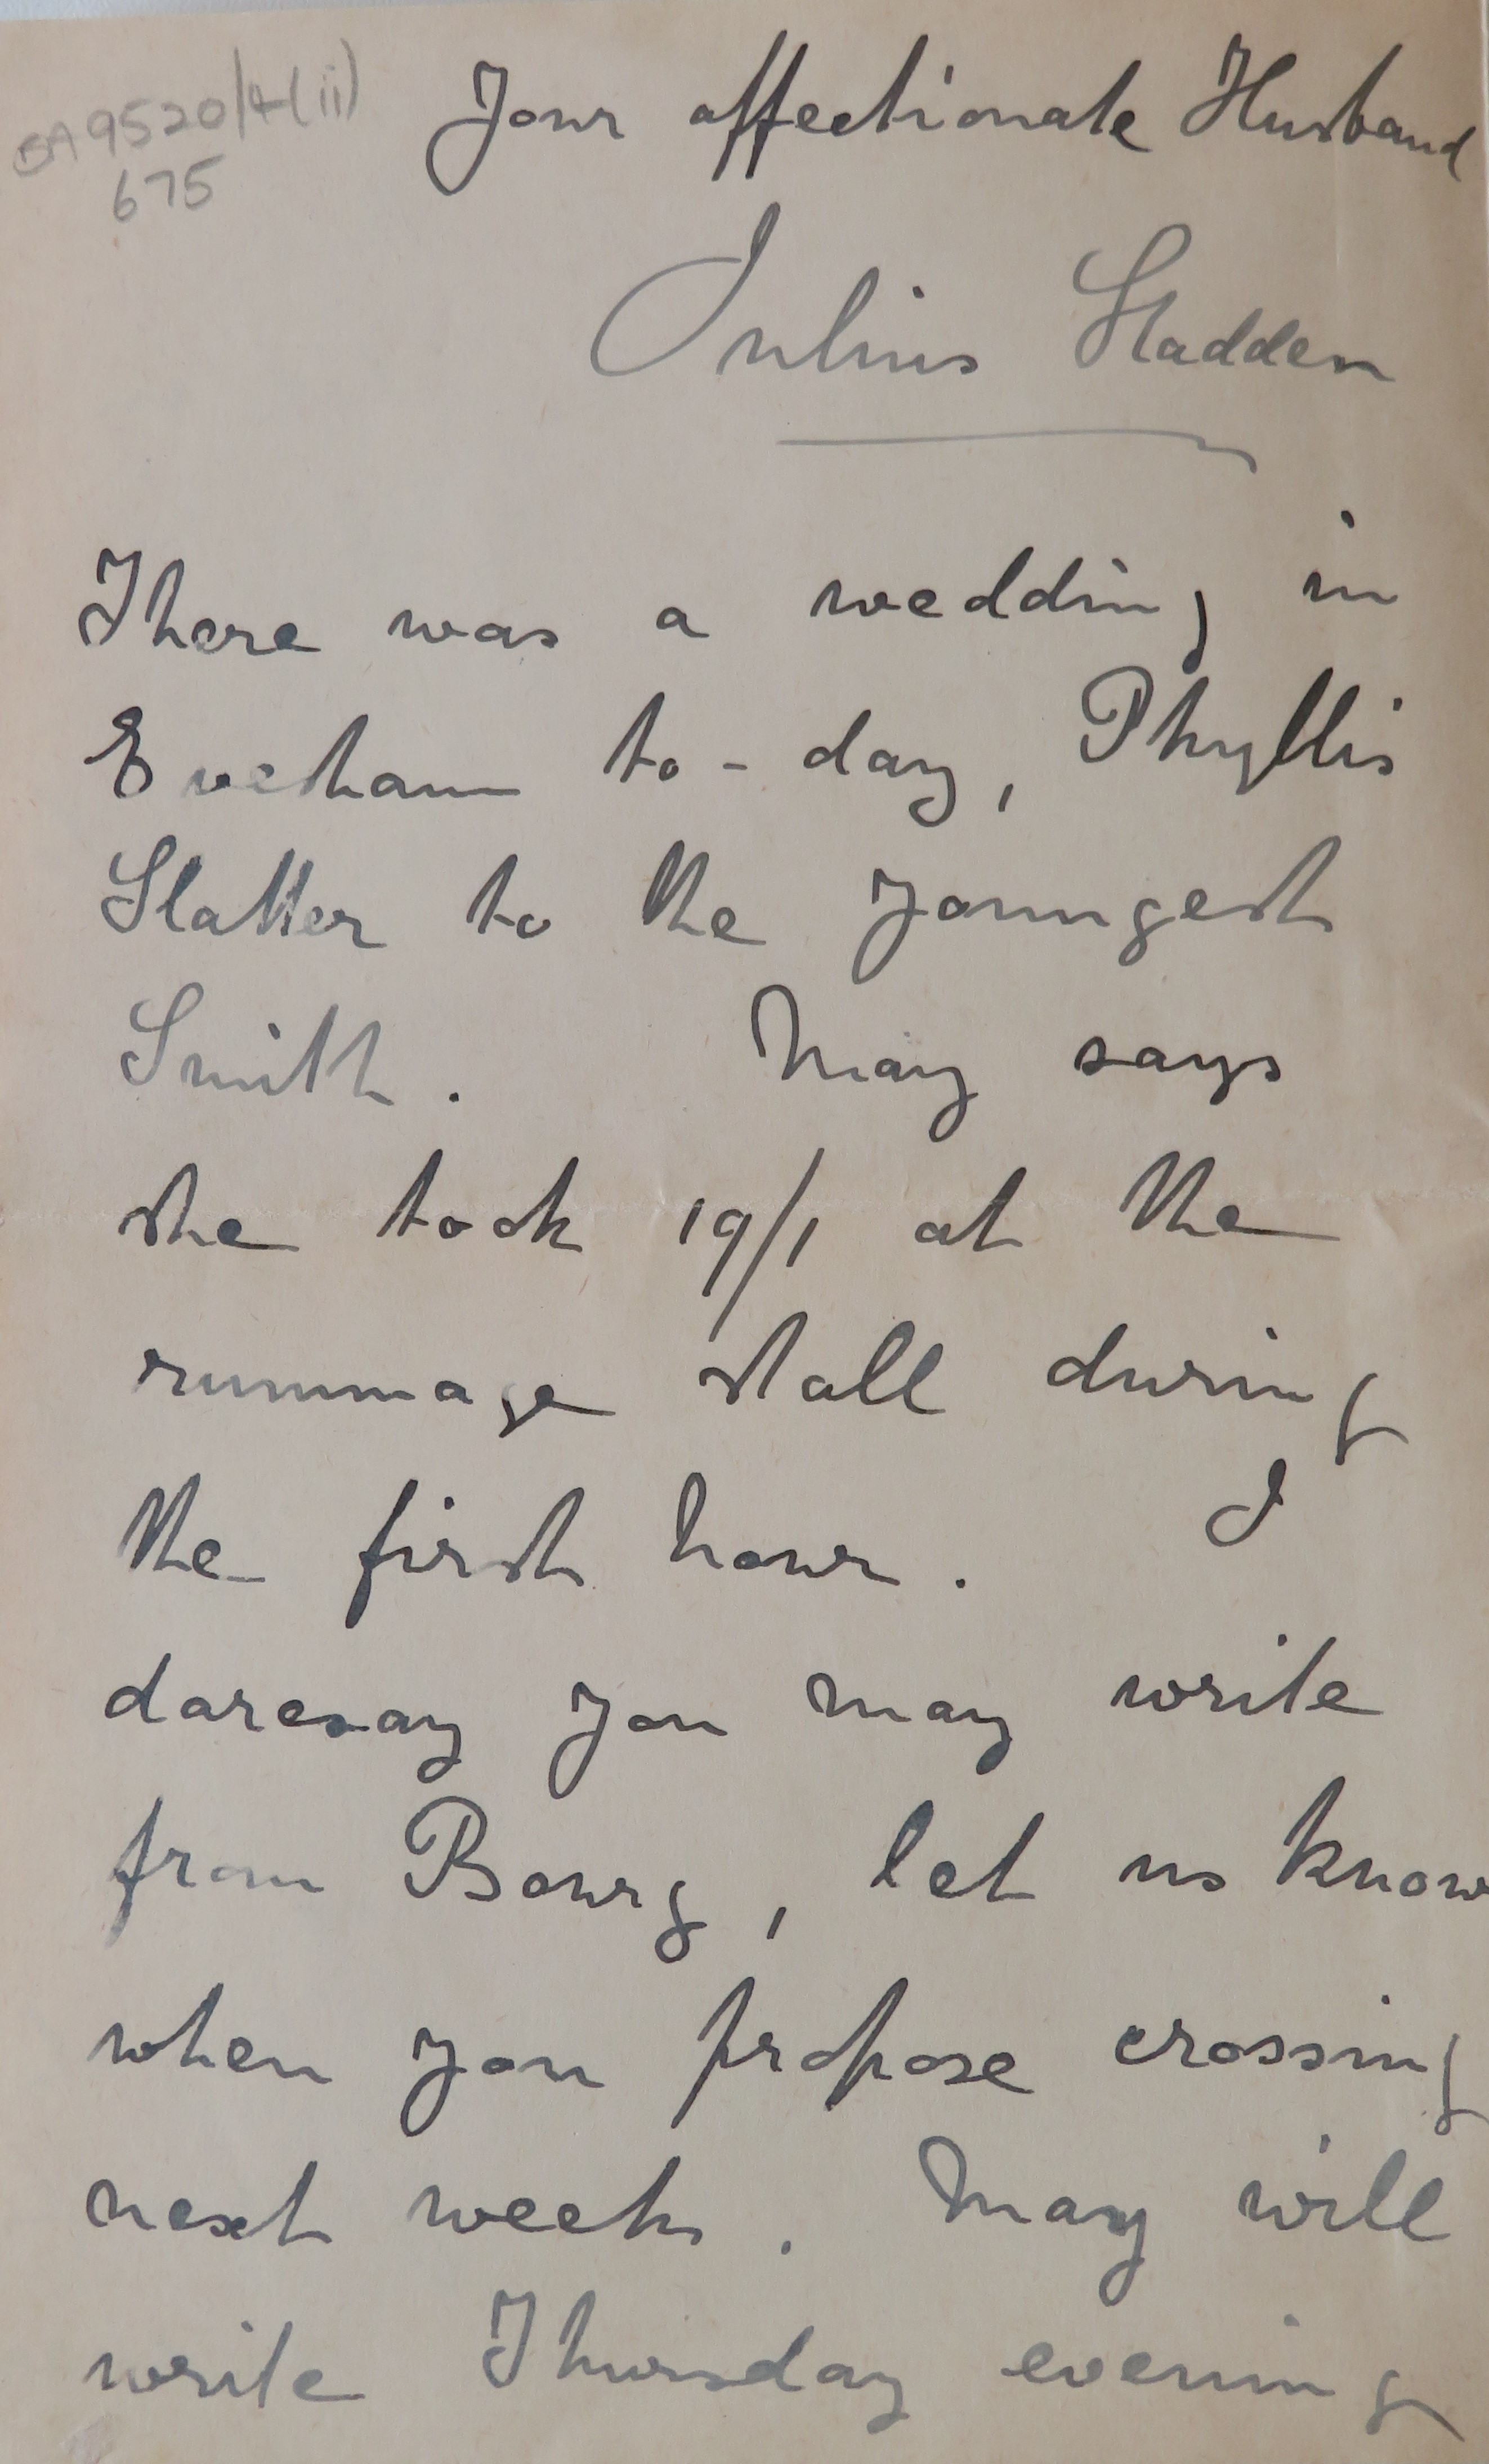 BA9520/4(ii)
675
Your affectionate Husband
Julius Sladden
There was a wedding in
Evesham to-day, Phyllis
Slatter to the youngest
Smith. May says
she took 19/1 at the
rummage stall during
the first hour. I
daresay you may write
from Bourg, let us know
when you propose crossing
next week. May will
write Thursday evening